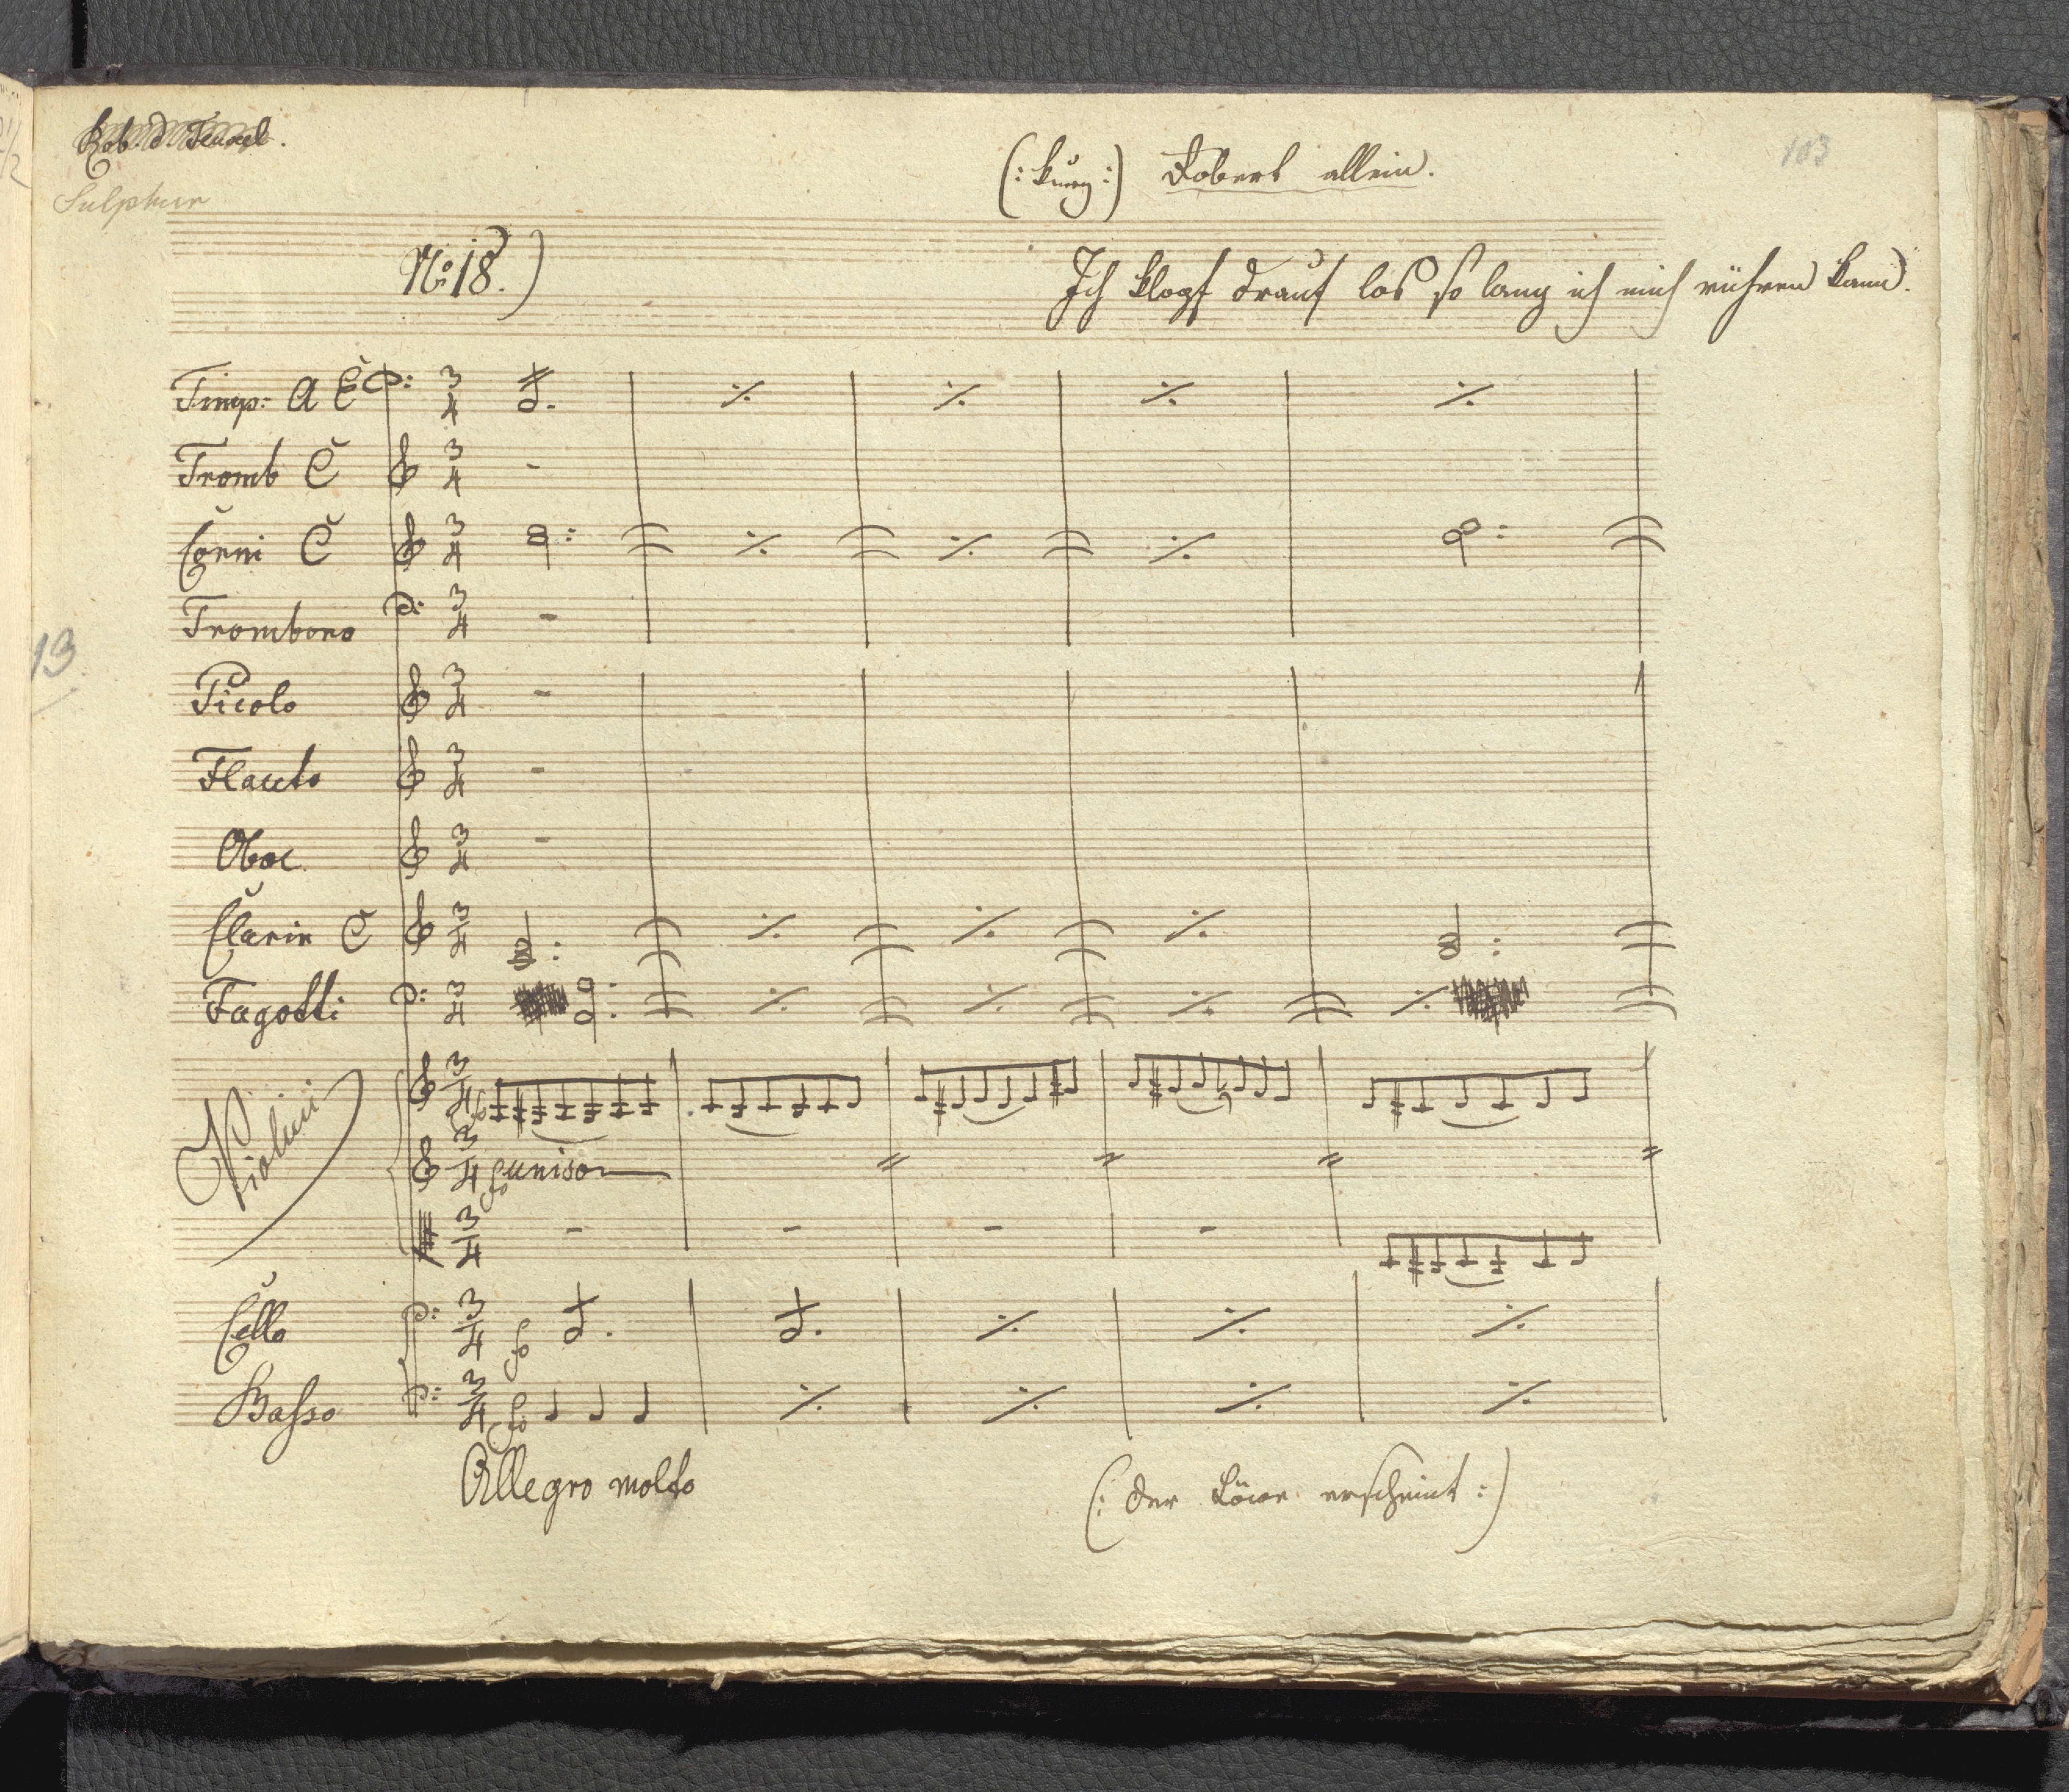 Rob. d. Teuxel.
Sulphur
103
(: kurz :) Robert allein.
No 18.)
Ich klopf drauf los so lang ich mich rühren kann.
Timp: A E
Tromb C
Corni C
Trombono
13
Picolo
Flauto
Oboe
Clarin C
Fagotti
Violini
fo
unison
fo
Cello
fo
Basso
fo
Allegro molto
(: der Löwe erscheint :)